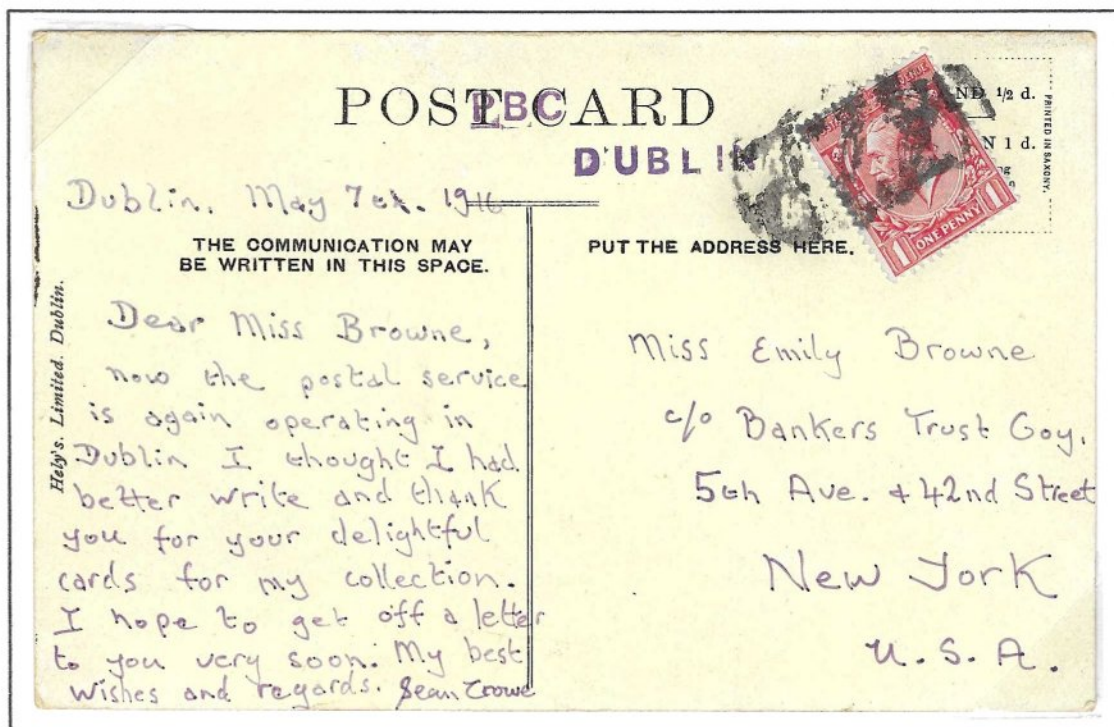 POST CARD
PBC
DUBLIN
½ d.
N 1 d.
PRINTED IN SAXONY.
ONE PENNY
1 1
Dublin, May 7th. 1916
THE COMMUNICATION MAY
BE WRITTEN IN THIS SPACE.
PUT THE ADDRESS HERE.
Hely's. Limited. Dublin.
Dear Miss Browne,
now the postal service
is again operating in
Dublin I thought I had
better write and thank
you for your delightful
cards for my collection.
I hope to get off a letter
to you very soon. My best
wishes and regards. Sean Crowe
Miss Emily Browne
c/o Bankers Trust Coy.
5th Ave. + 42nd Street
New York
U. S. A.